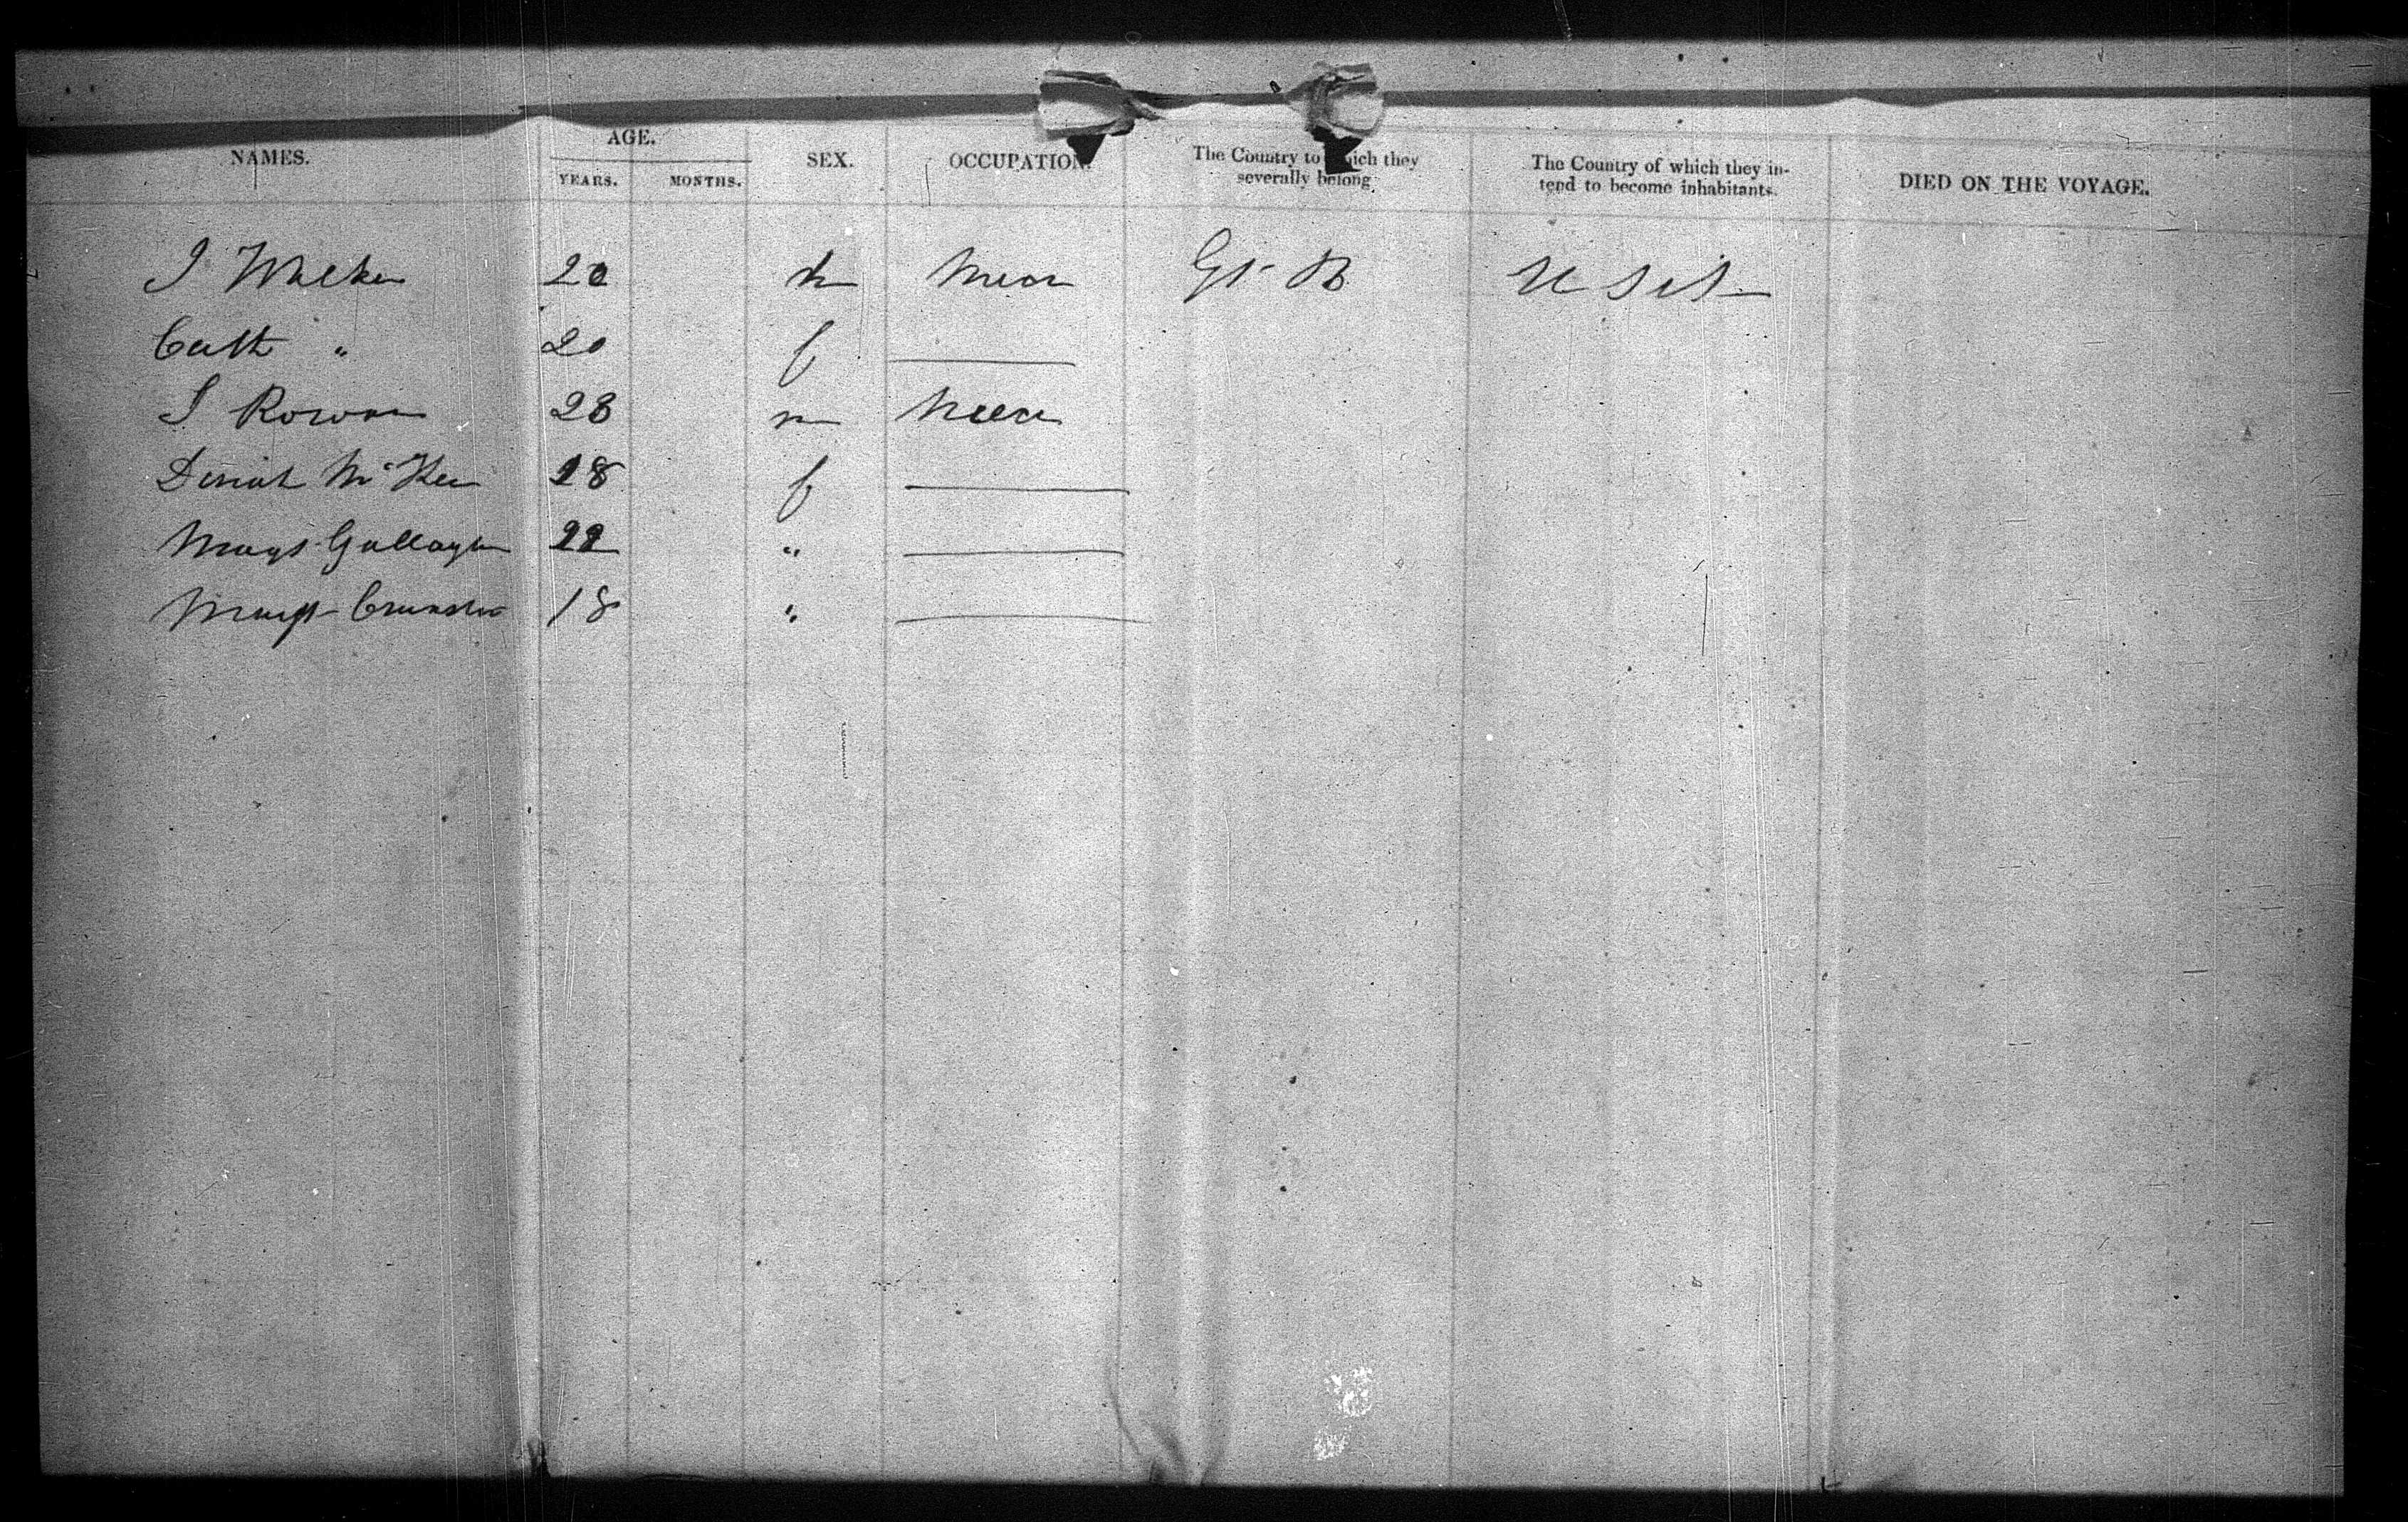 NAMES. AGE. YEARS. MONTHS. SEX. OCCUPATION. The Country to which they severally belong. The Country of which they intend to become inhabitants. DIED ON THE VOYAGE.
J Walker 20 m Mecr Gt B U St
Cath " 20 f
J Rowan 28 m
McKee 18 f
Margt Gallagher 22 "
Margt 18 "